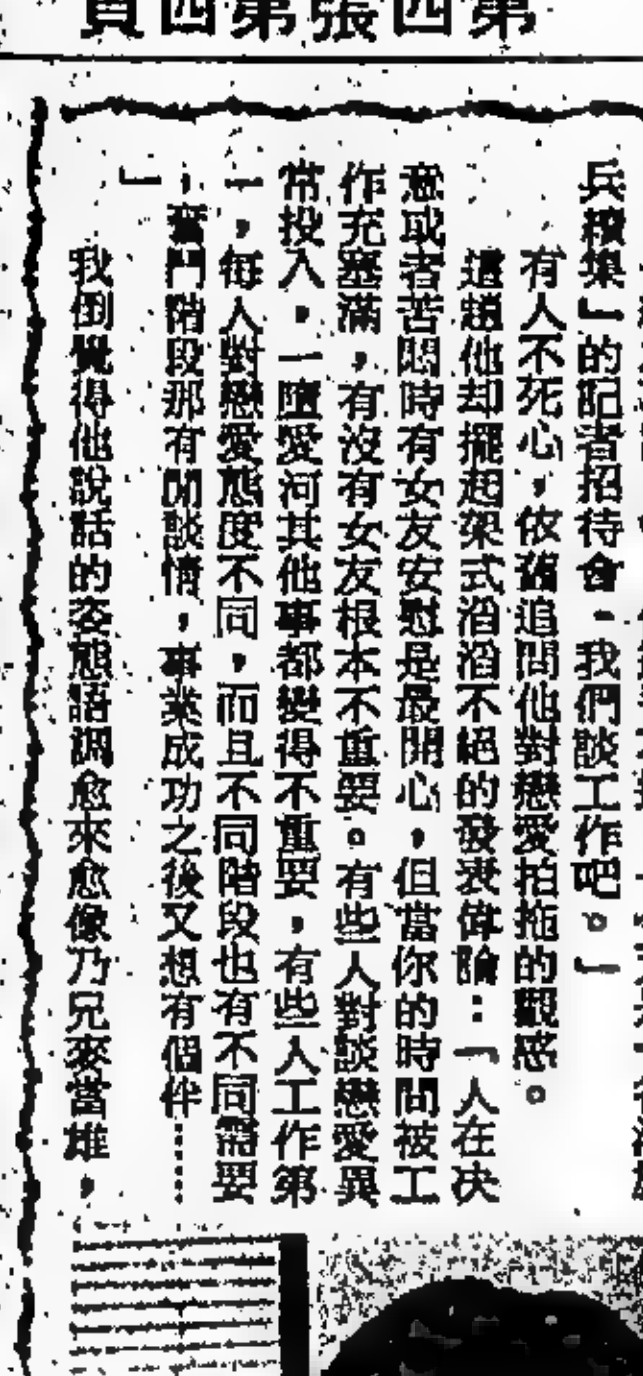 第四張第四頁
兵搜集」的記者招待會。我們談工作吧。」
有人不死心,依舊追問他對戀愛拍拖的觀感。
這趟他却擺起架式滔滔不絕的發表偉論:「人在決
意或者苦悶時有女友安慰是最開心,但當你的時間被工
作充塞滿,有沒有女友根本不重要。有些人對談戀愛異
常投入,一墮愛河其他事都變得不重要,有些人工作第
一,每人對戀愛態度不同,而且不同階段也有不同需要
,奮鬥階段那有閒談情,事業成功之後又想有個伴……
」
我倒覺得他說話的姿態語調愈來愈像乃兄麥當雄,